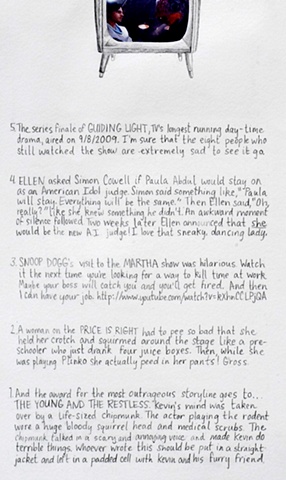 5. The series finale of GUIDING LIGHT, TV's longest running day-time
drama, aired on 9/8/2009. I'm sure that the eight people who
still watched the show are extremely sad to see it go
4. ELLEN asked Simon Cowell if Paula Abdul would stay on
as an American Idol judge. Simon said something like, "Paula
will stay. Everything will be the same." Then Ellen said, "Oh,
really?" like she knew something he didn't. An awkward moment
of silence followed. Two weeks later Ellen announced that she
would be the new A.I. judge! I love that sneaky, dancing lady.
3. SNOOP DOGG's visit to the MARTHA show was hilarious. Watch
it the next time you're looking for a way to kill time at work.
Maybe your boss will catch you and you'll get fired. And then
I can have your job. http://www.youtube.com/watch?v=
2. A woman on the PRICE IS RIGHT had to pee so bad that she
held her crotch and squirmed around the stage like a pre-
schooler who just drank four juice boxes. Then, while she
was playing Plinko she actually peed in her pants! Gross.
1. And the award for the most outrageous storyline goes to...
THE YOUNG AND THE RESTLESS. Kevin's mind was taken
over by a life-sized chipmunk. The actor playing the rodent
wore a huge bloody squirrel head and medical scrubs. The
chipmunk talked in a scary and annoying voice and made Kevin do
terrible things. Whoever wrote this should be put in a straight
jacket and left in a padded cell with Kevin and his furry friend.